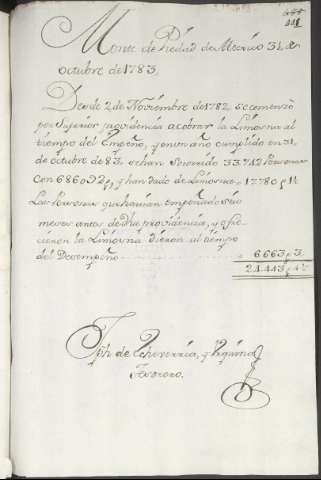 441
Monte de Piedad de Mexico 31 de
octubre de 1783,,
Desde 2 de Noviembre de 1782 se comenzó
por Superior providencia a cobrar la Limosna al
tiempo del Empeño, y en un año cumplido en 31
de octubre de 83. se han Socorrido 33.742 Personas
con 686092 p. y han dado de Limosna 17.780 p. 1½
Las Personas que havian empeñado seis
meses antes de dha providencia, y ofre-
cieron la Limosna dieron al tiempo
del Desempeño 6.663 p. 3
24.443 p. 4½
Jph. de Echeverria, y
Tesorero.